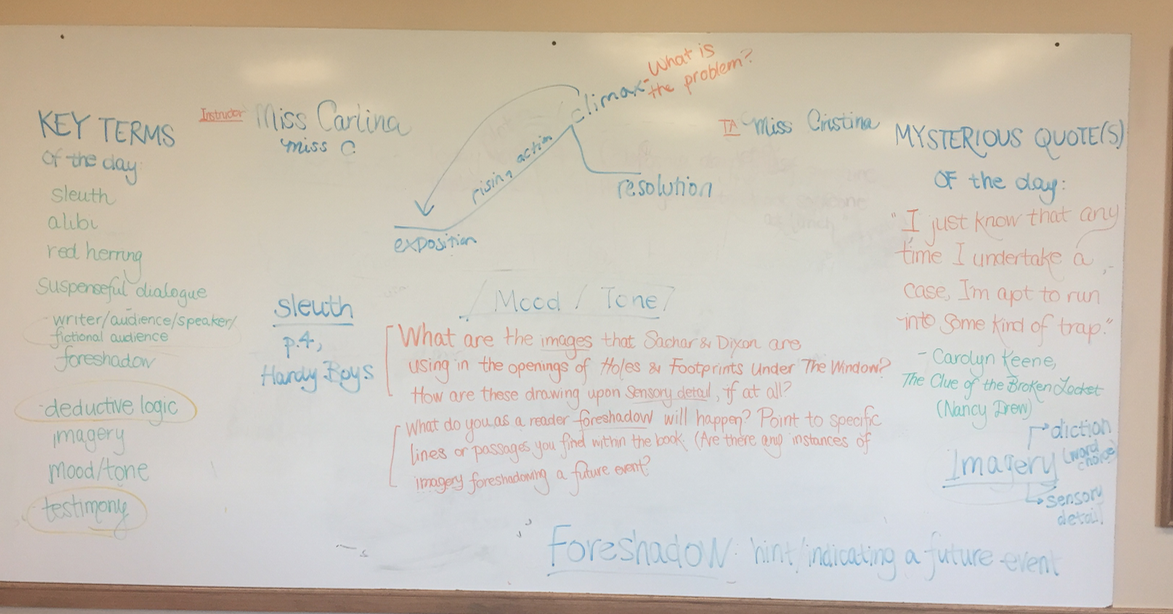 KEY TERMS
of the day
sleuth
alibi
red herring
suspenseful dialogue
- writer/audience/speaker/
fictional audience
foreshadow
deductive logic
imagery
mood/tone
testimony
Instructor Miss Carlina
miss C
climax - What is
the problem?
rising action
resolution
exposition
TA Miss Cristina
sleuth
p.4,
Hardy Boys
Mood / Tone
What are the images that Sachar & Dixon are
using in the openings of Holes & Footprints Under The Window?
How are these drawing upon sensory detail, if at all?
What do you as a reader foreshadow will happen? Point to specific
lines or passages you find within the book. (Are there any instances of
imagery foreshadowing a future event?
MYSTERIOUS QUOTE(S)
OF the day:
"I just know that any
time I undertake a
case, I'm apt to run
into some kind of trap."
- Carolyn Keene,
The Clue of the Broken Locket
(Nancy Drew)
Imagery
diction
(word
choice)
sensory
detail
Foreshadow: hint/indicating a future event